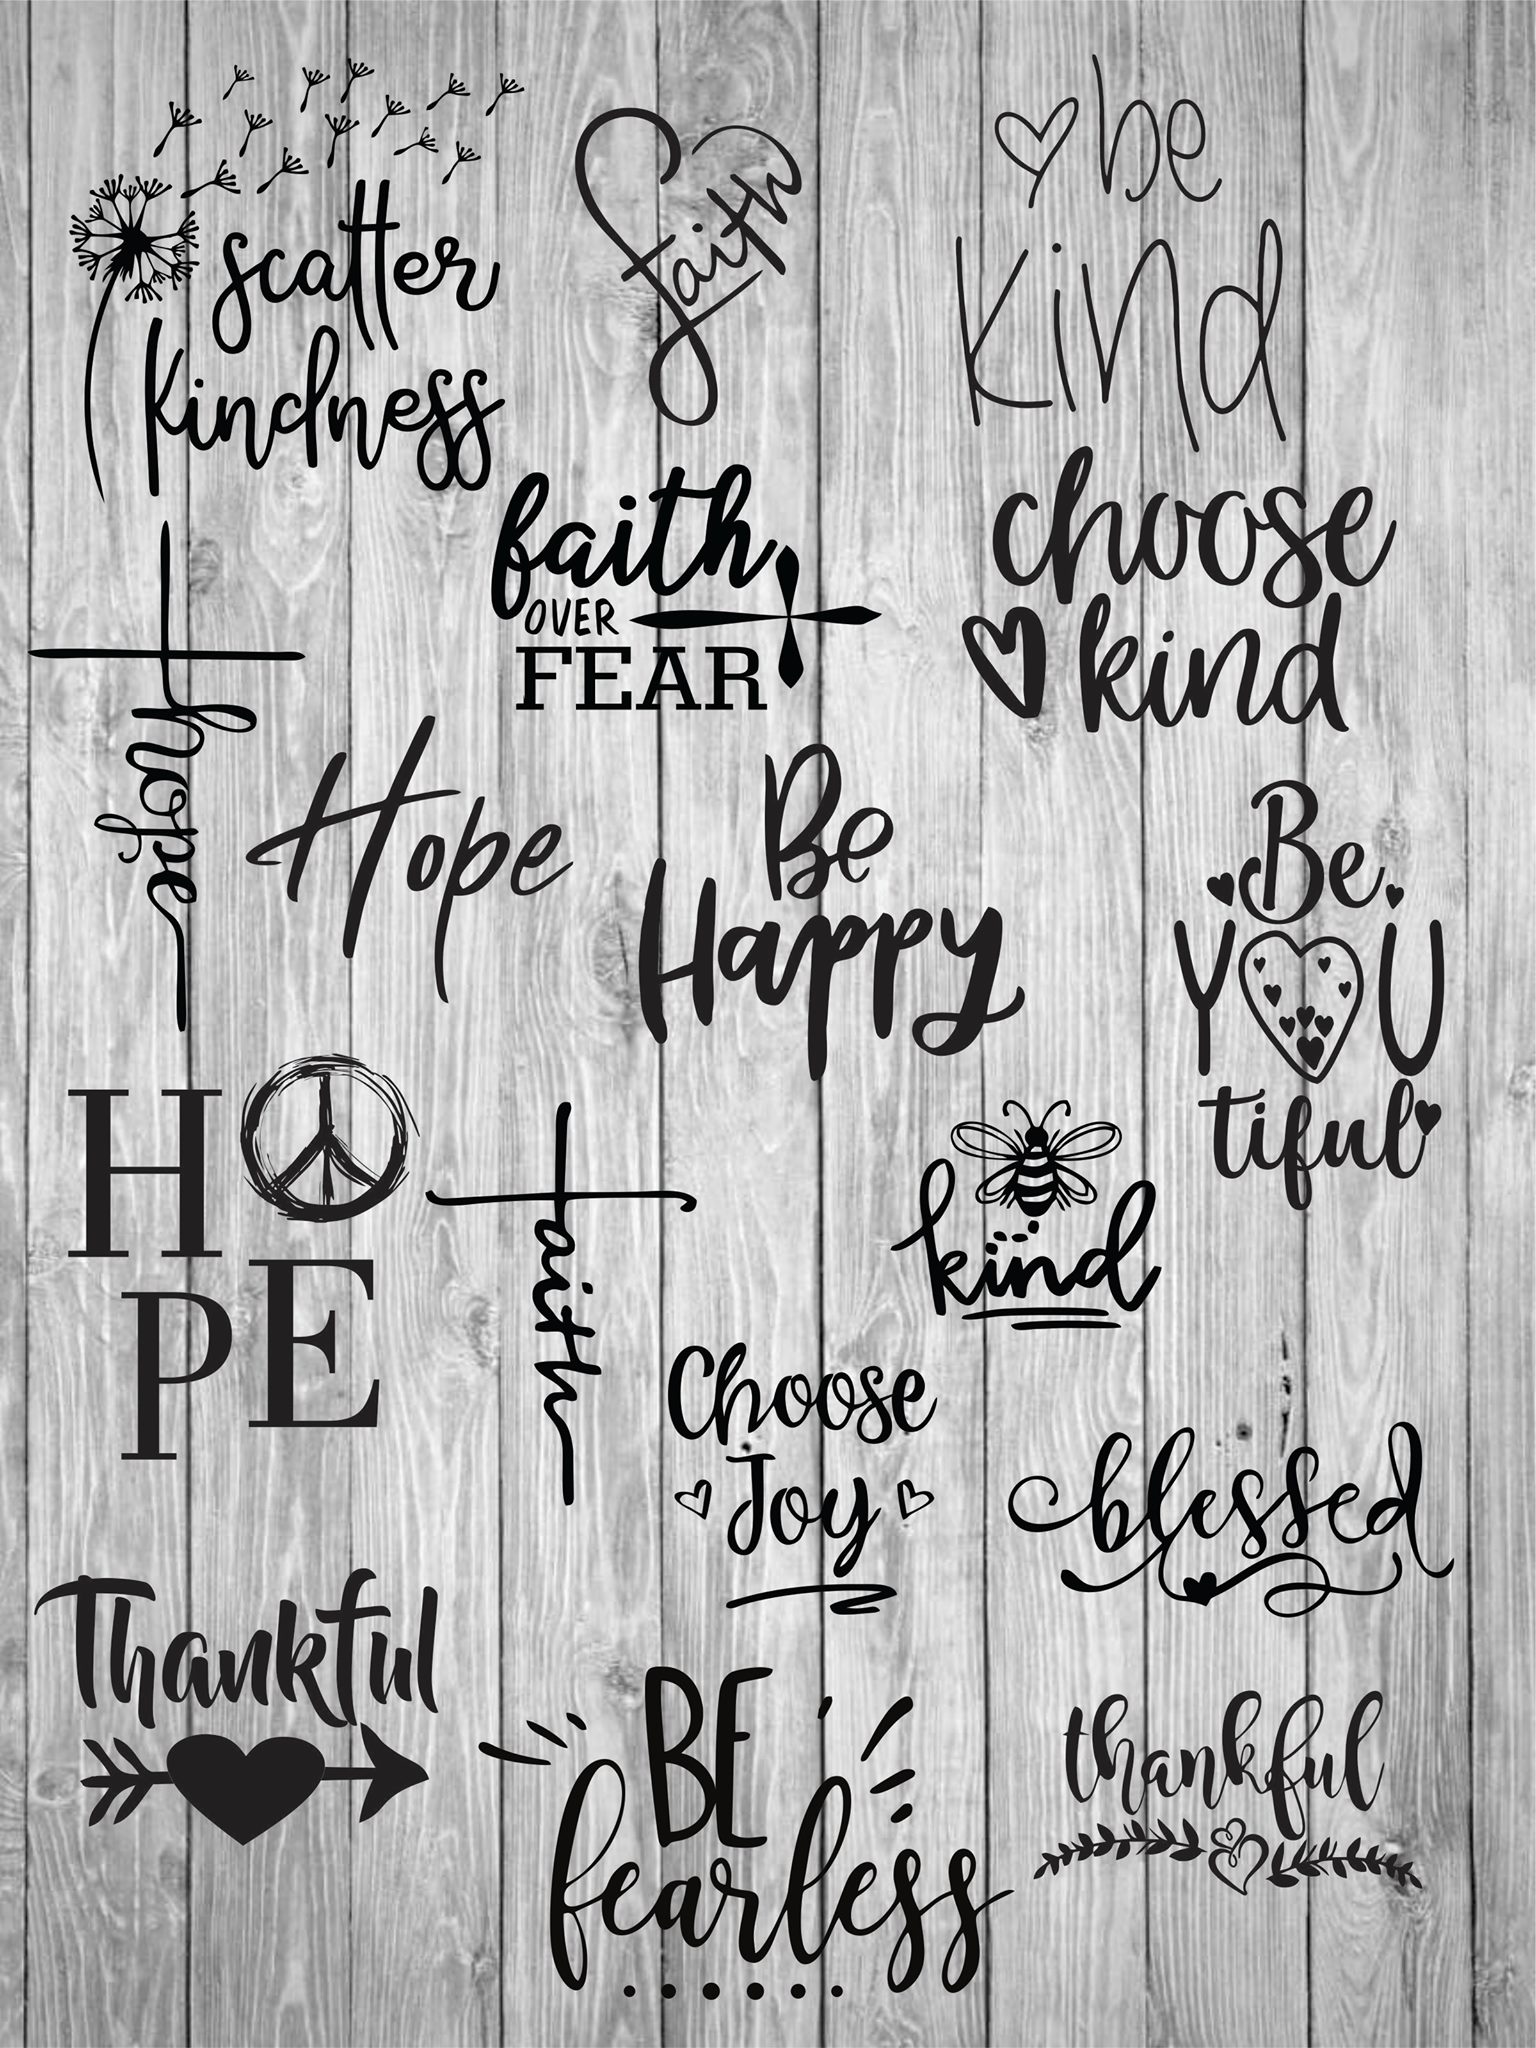 scatter
kindness
faith
be
kind
faith
OVER
FEAR
choose
kind
hope
Hope
Be
Happy
Be
YOU
tiful
HO
PE
faith
kind
Choose
Joy
blessed
Thankful
BE
fearless
thankful